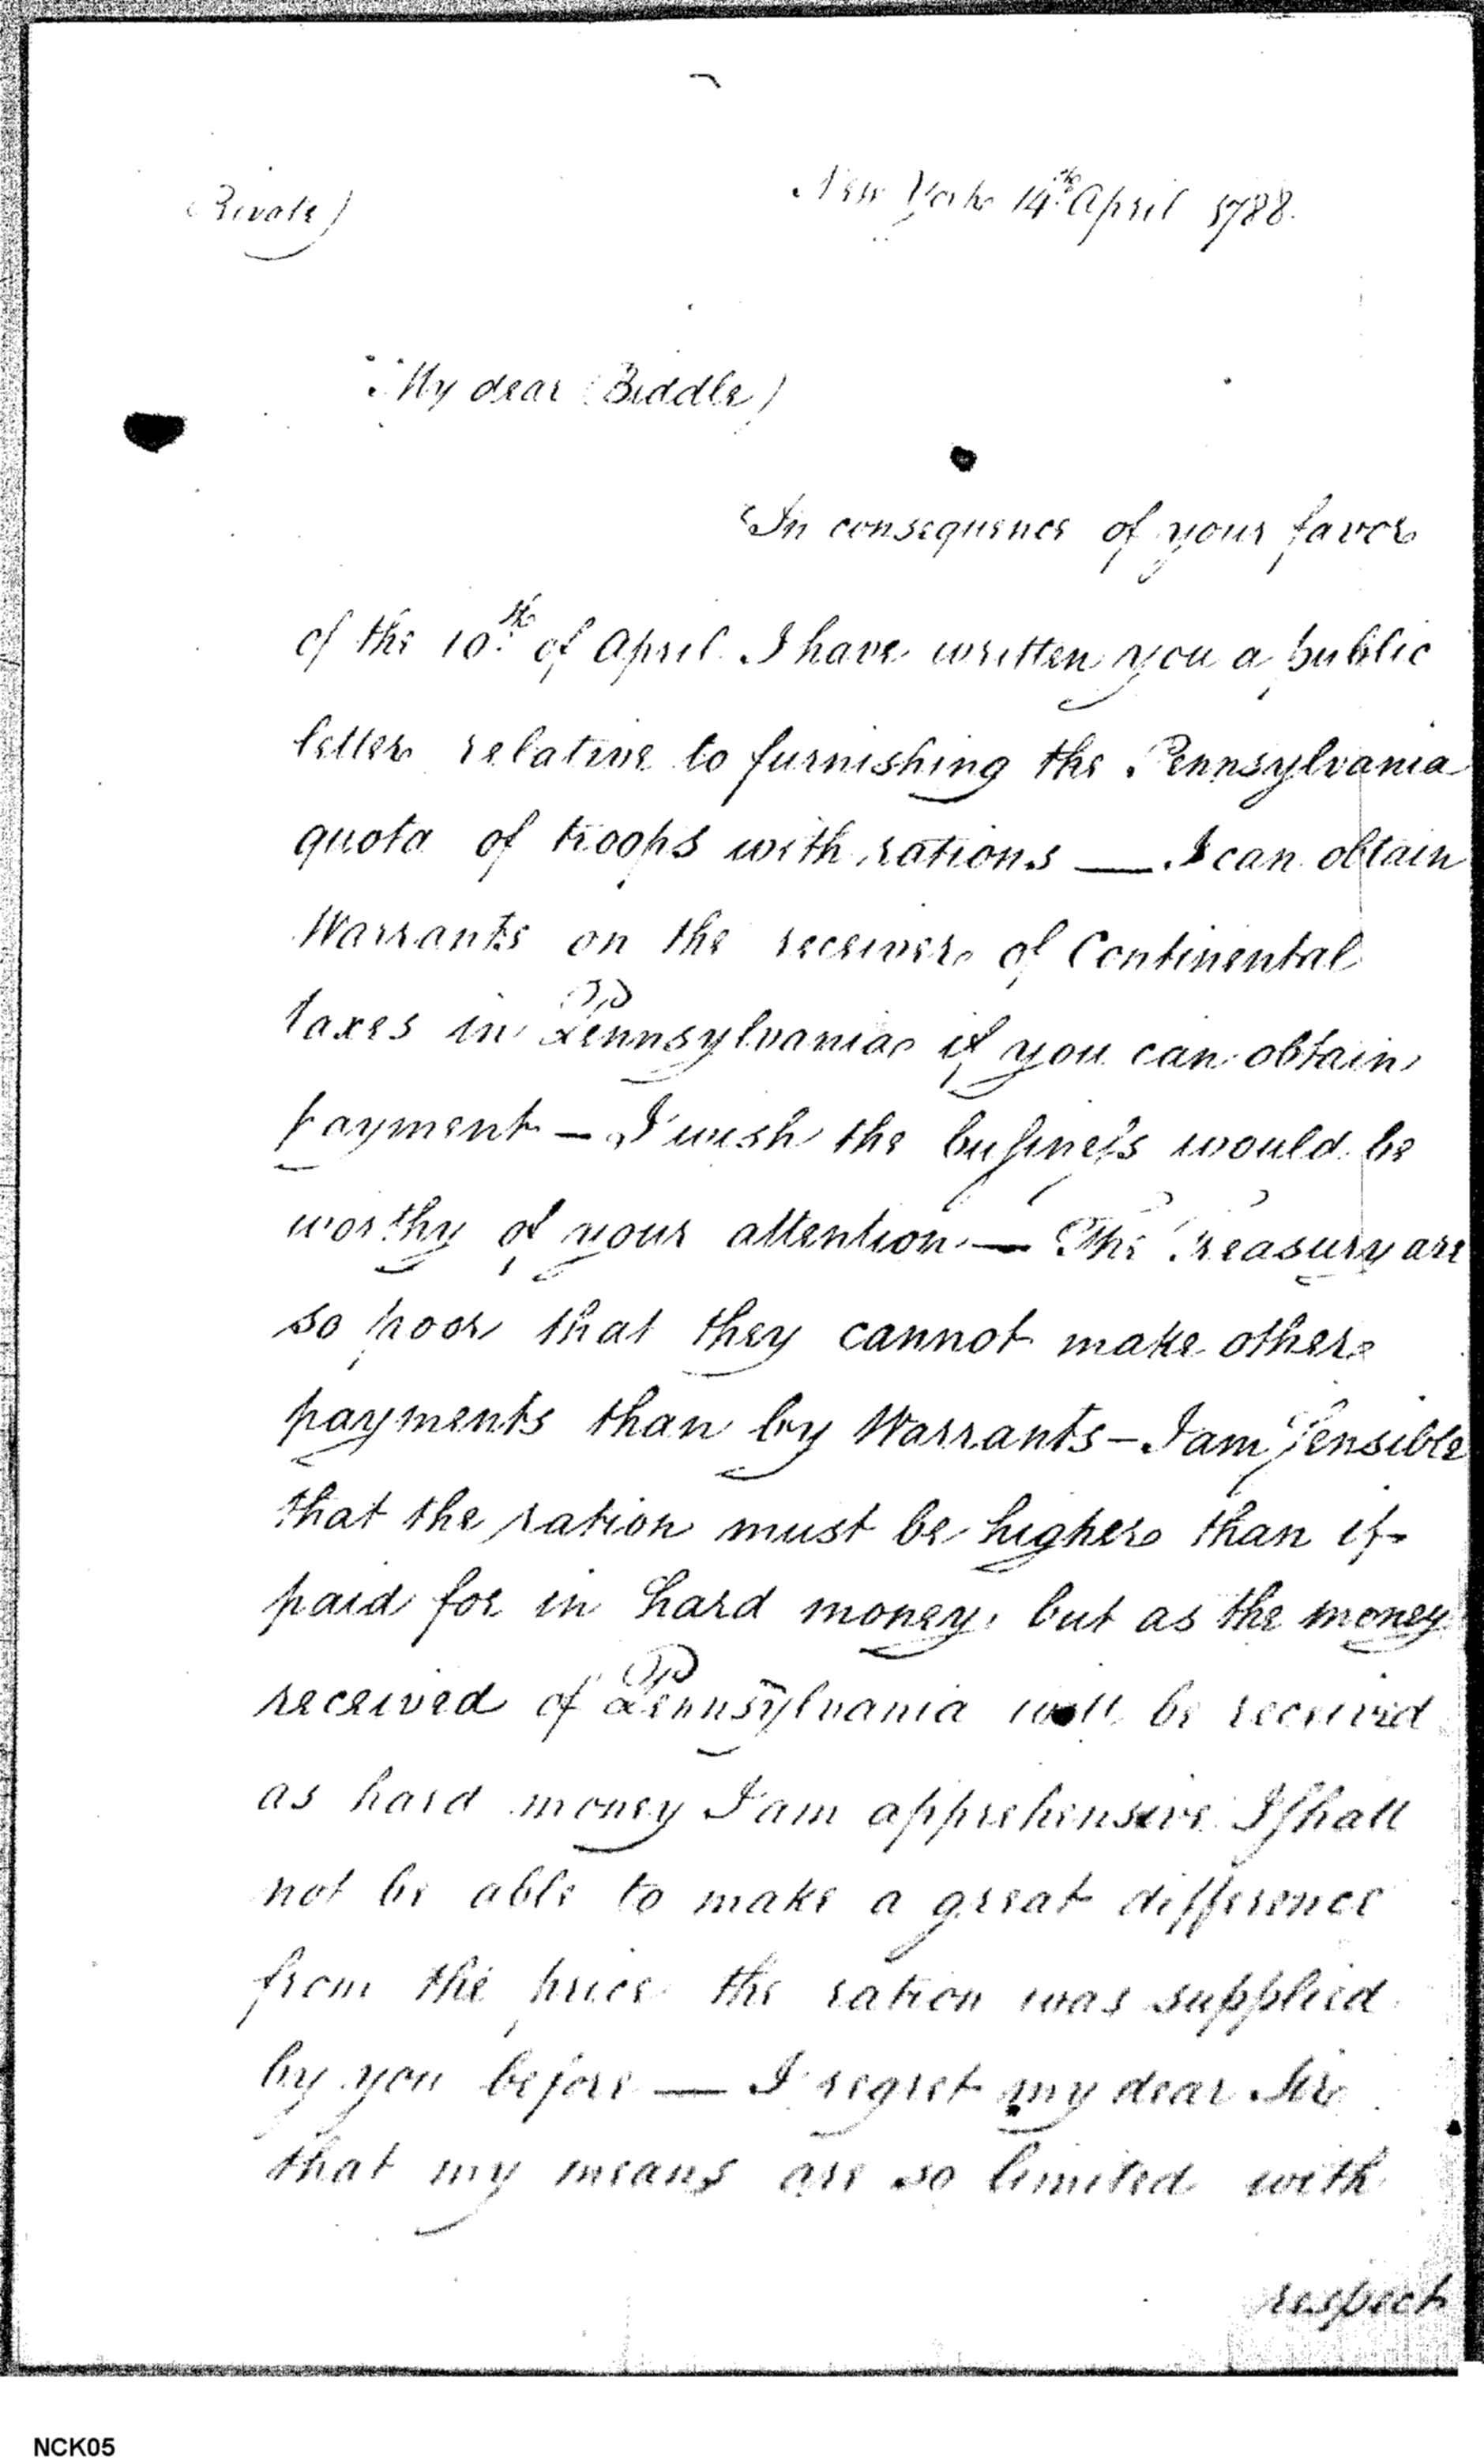 (Private)
New York 14th April 1788.
My dear (Biddle)
In consequence of your favor
of the 10th of April I have written you a public
letter relative to furnishing the Pennsylvania
quota of troops with rations — I can obtain
Warrants on the receiver of Continental
taxes in Pennsylvania if you can obtain
payment — I wish the business would be
worthy of your attention — The Treasury are
so poor that they cannot make other
payments than by Warrants — I am sensible
that the ration must be higher than if
paid for in hard money, but as the money
received of Pennsylvania will be received
as hard money I am apprehensive I shall
not be able to make a great difference
from the price the ration was supplied
by you before — I regret my dear Sir
that my means are so limited with
respect
NCK05